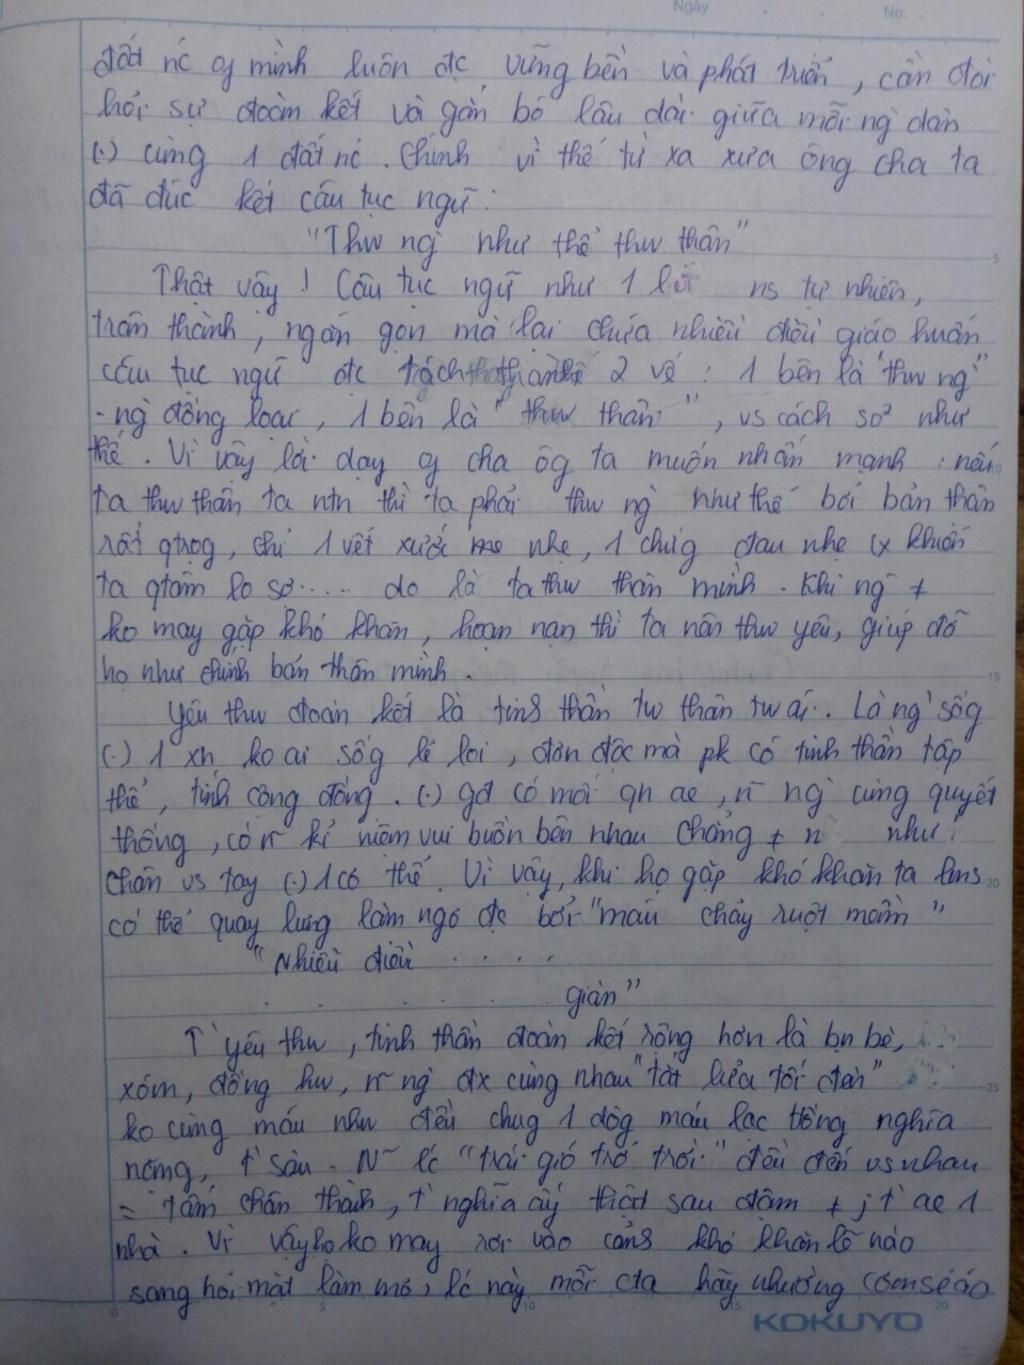 Ngày No.
đất nc of mình luôn đc vững bền và phát triển, cần đòi
hỏi sự đoàn kết và gắn bó lâu dài giữa mỗi ng dân
(.) cùng 1 đất nc. Chính vì thế từ xa xưa ông cha ta
đã đúc kết câu tục ngữ:
"Thw ng như thể thw thân"
Thật vậy! Câu tục ngữ như 1 lời ns tự nhiên,
trân thành, ngắn gọn mà lại chứa nhiều điều giáo huấn
câu tục ngữ đc tách thành 2 vế: 1 bên là "thw ng"
- ng đồng loại, 1 bên là "thw thân", vs cách so² như
thế. Vì vậy lời dạy of cha ôg ta muốn nhấn mạnh: nếu
ta thw thân ta ntn thì ta phải thw ng như thế bởi bản thân
rất qtrọg, chỉ 1 vết xước nhẹ, 1 chứg đau nhẹ cx khiến
ta qtâm lo sợ..... do là ta thw thân mình. Khi ng ≠
ko may gặp khó khăn, hoạn nạn thì ta nên thw yêu, giúp đỡ
họ như chính bản thân mình.
Yêu thw đoàn kết là tinh thần tw thân tw ái. Là ng sốg
(.) 1 xh ko ai sốg lẻ loi, đơn độc mà pk có tinh thần tập
thể, tính cộng đồng. (.) gđ có mối qh ae, n~ ng cùng quyết
thống, có n~ kỉ niệm vui buồn bên nhau chẳng ≠ n như
chân vs tay (.) 1 cơ thể. Vì vậy, khi họ gặp khó khăn ta
có thể quay lưng làm ngơ đc bởi "máu chảy ruột mềm"
"Nhiễu điều . . . .
. . . . . giàn"
T` yêu thw, tinh thần đoàn kết rộng hơn là bạn bè,
xóm, đồng hw, n~ ng đx cùng nhau "tắt lửa tối đèn"
ko cùng máu nhw đều chug 1 dòg máu lạc hồng nghĩa
nặng, t` sâu. N~ lc "trái gió trở trời" đều đến vs nhau
= tấm chân thành, t` nghĩa ấy thật sau đậm ≠ j t` ae 1
nhà. Vì vậy họ ko may rơi vào cảnh khó khăn lẽ nào
sang hỏi mặt làm mơ, lc này mỗi cta hãy nhường cơm sẻ áo
KOKUYO